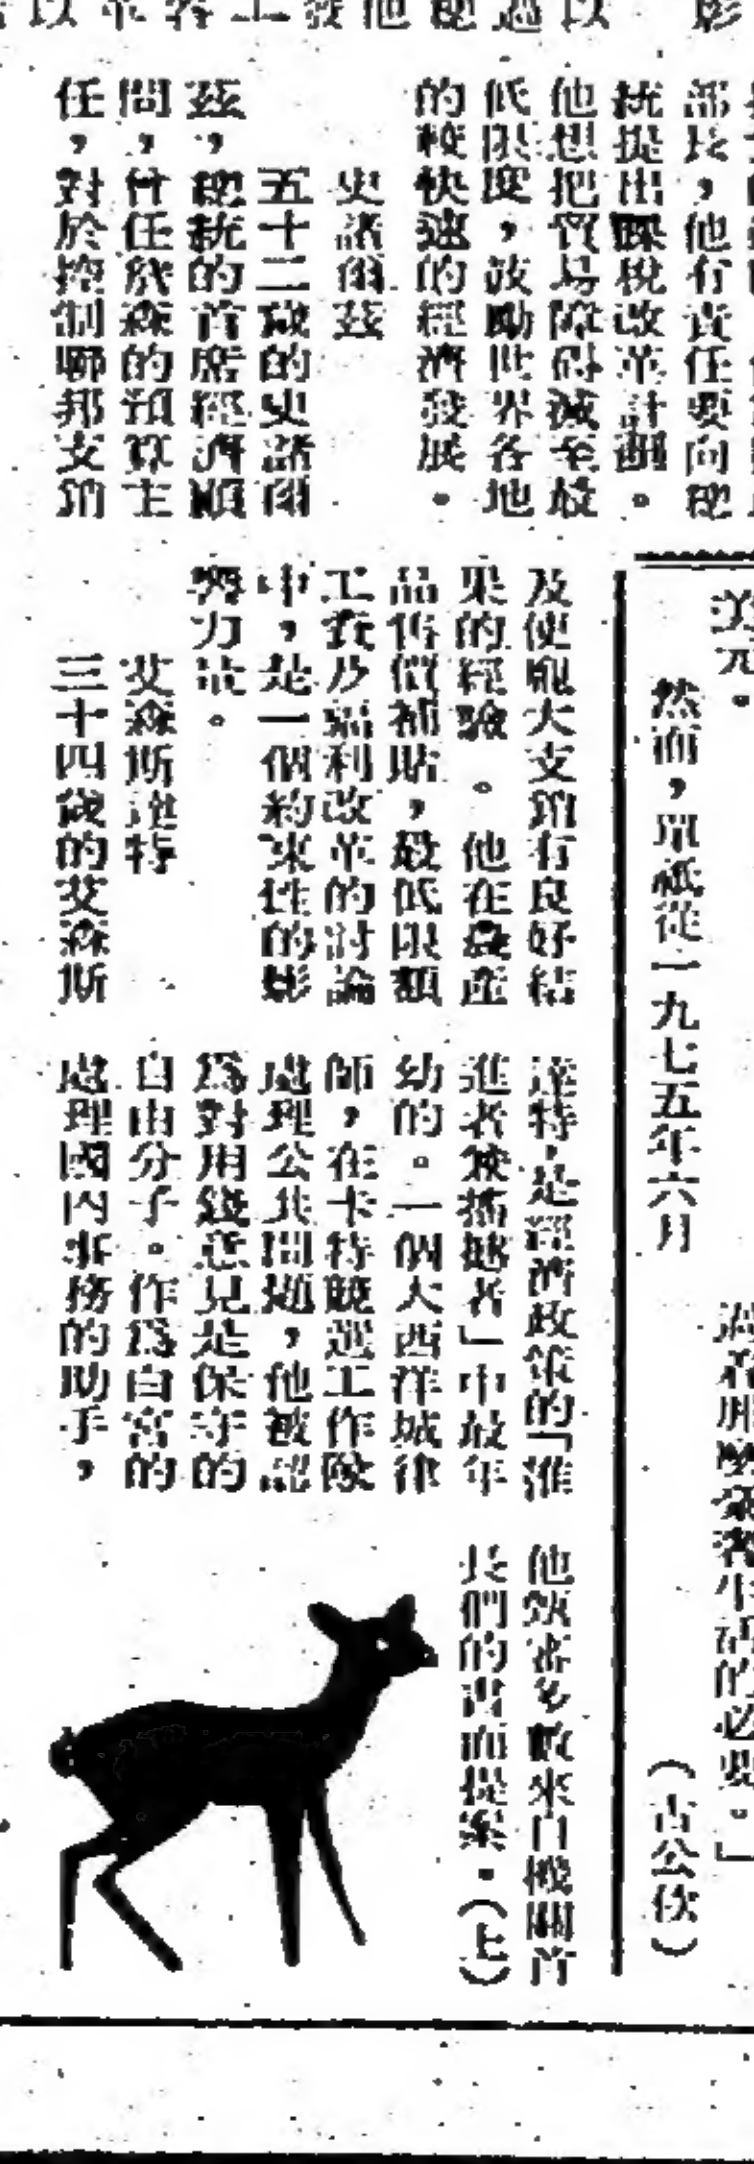 部長，他有責任要向總
統提出課稅改革計劃。
他想把貿易障碍減至最
低限度，鼓勵世界各地
的較快速的經濟發展。
史諸爾茲
五十二歲的史諸爾
茲，總統的首席經濟顧
問，曾任詹森的預算主
任，對於控制聯邦支銷
及使龐大支銷有良好結
果的經驗。他在農產
品售價補貼，最低限額
工資及福利改革的討論
中，是一個約束性的影
響力量。
艾森斯達特
三十四歲的艾森斯
達特，是經濟政策的「推
進者兼搖撼者」中最年
幼的。一個大西洋城律
師，在卡特競選工作隊
處理公共問題，他被認
為對用錢意見是保守的
自由分子。作為白宮的
處理國內事務的助手，
他須審多數來自機關首
長們的書面提案。（上）
美元。
然而，單祇從一九七五年六月
（古公俠）